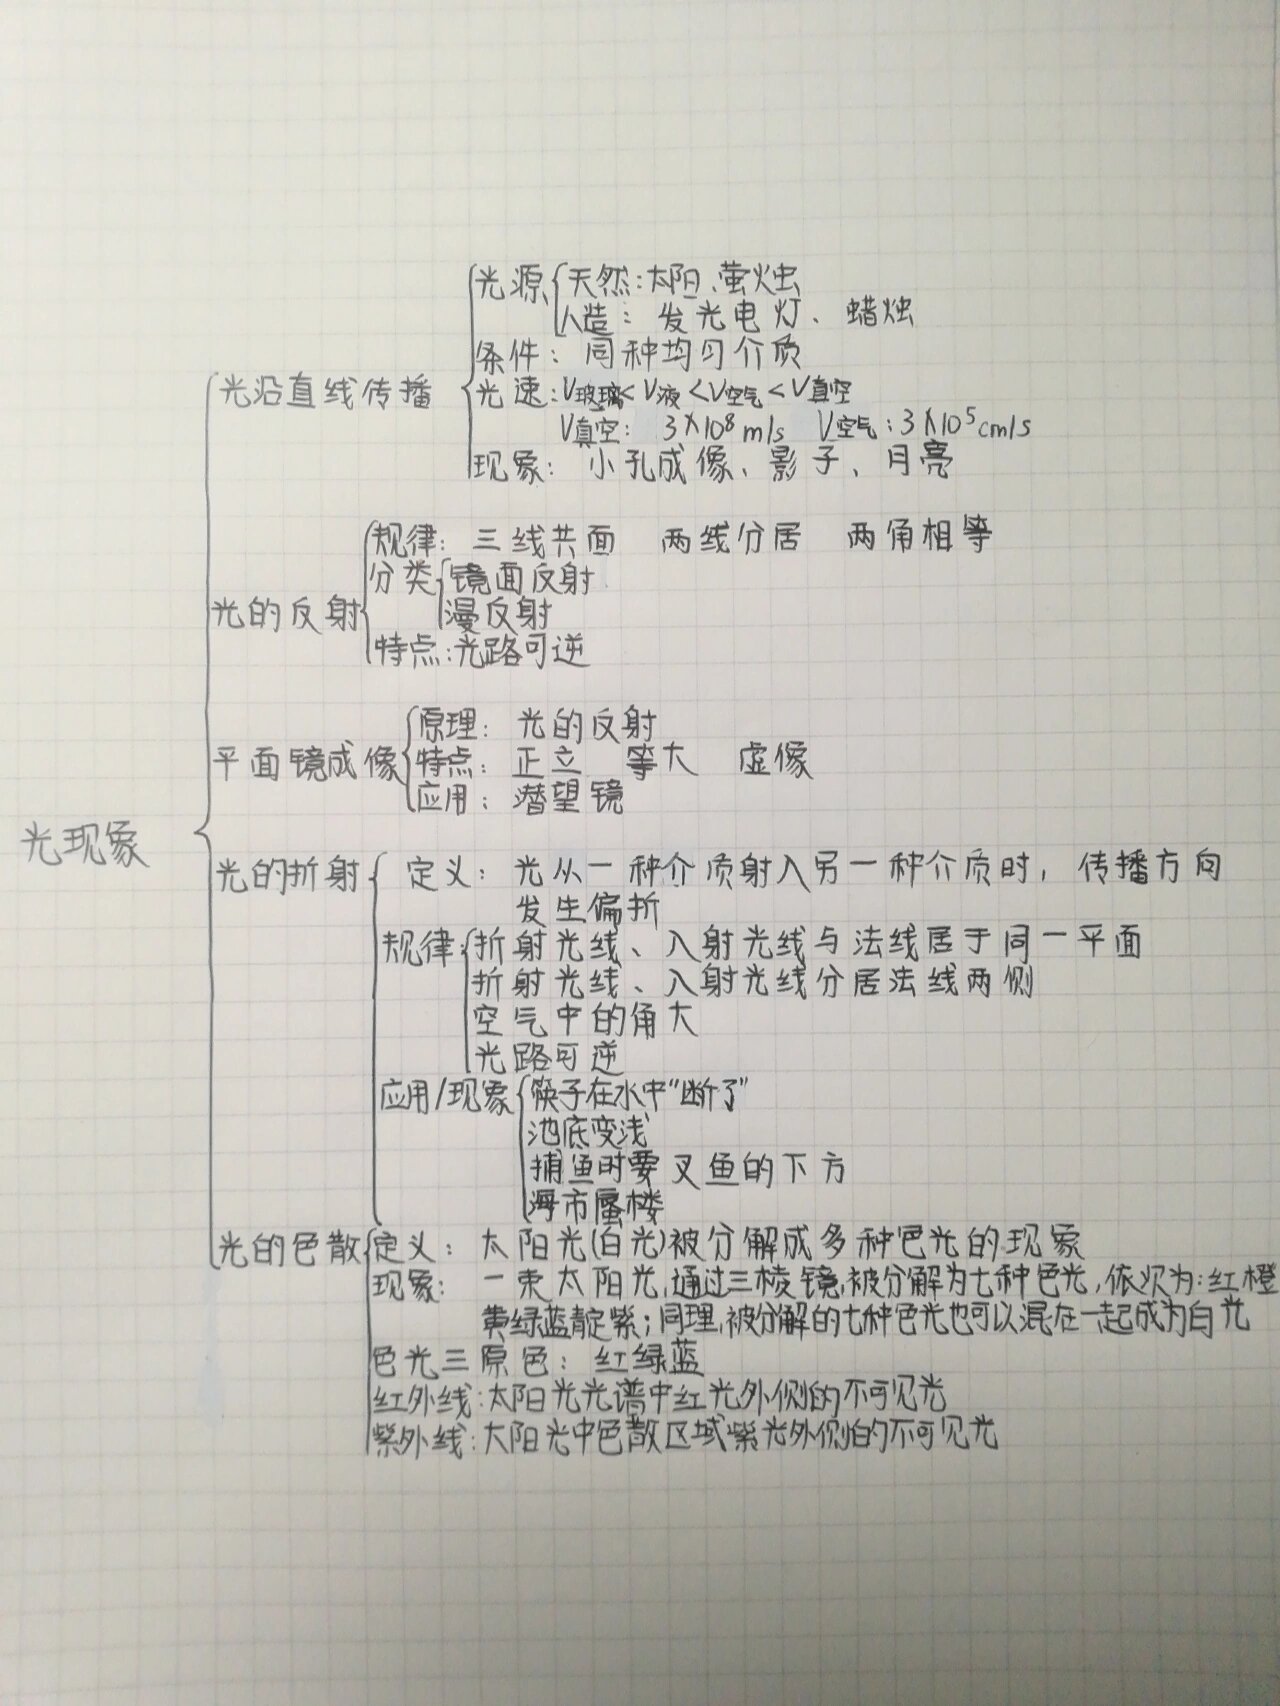 光源 天然：太阳、萤烛虫
人造：发光电灯、蜡烛
条件：同种均匀介质
光沿直线传播 光速：V玻璃<V液<V空气<V真空
V真空：3×10⁸m/s V空气：3×10⁵cm/s
现象：小孔成像、影子、月亮
规律：三线共面 两线分居 两角相等
分类 镜面反射
光的反射 漫反射
特点：光路可逆
原理：光的反射
平面镜成像 特点：正立 等大 虚像
应用：潜望镜
光现象
光的折射 定义：光从一种介质射入另一种介质时，传播方向
发生偏折
规律 折射光线、入射光线与法线居于同一平面
折射光线、入射光线分居法线两侧
空气中的角大
光路可逆
应用/现象 筷子在水中“断了”
池底变浅
捕鱼时要叉鱼的下方
海市蜃楼
光的色散 定义：太阳光(白光)被分解成多种色光的现象
现象：一束太阳光，通过三棱镜，被分解为七种色光，依次为：红橙
黄绿蓝靛紫；同理，被分解的七种色光也可以混在一起成为白光
色光三原色：红绿蓝
红外线：太阳光光谱中红光外侧的不可见光
紫外线：太阳光中色散区域紫光外侧的不可见光